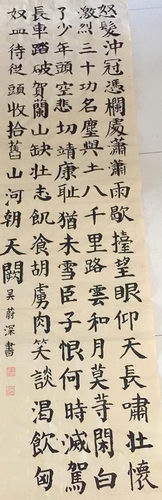 怒髮沖冠憑欄處瀟瀟雨歇擡望眼仰天長嘯壯懷
激烈三十功名塵與土八千里路雲和月莫等閑白
了少年頭空悲切靖康耻猶未雪臣子恨何時滅駕
長車踏破賀蘭山缺壯志飢食胡虜肉笑談渴飲匈
奴血待從頭收拾舊山河朝天闕
吳蔚深書